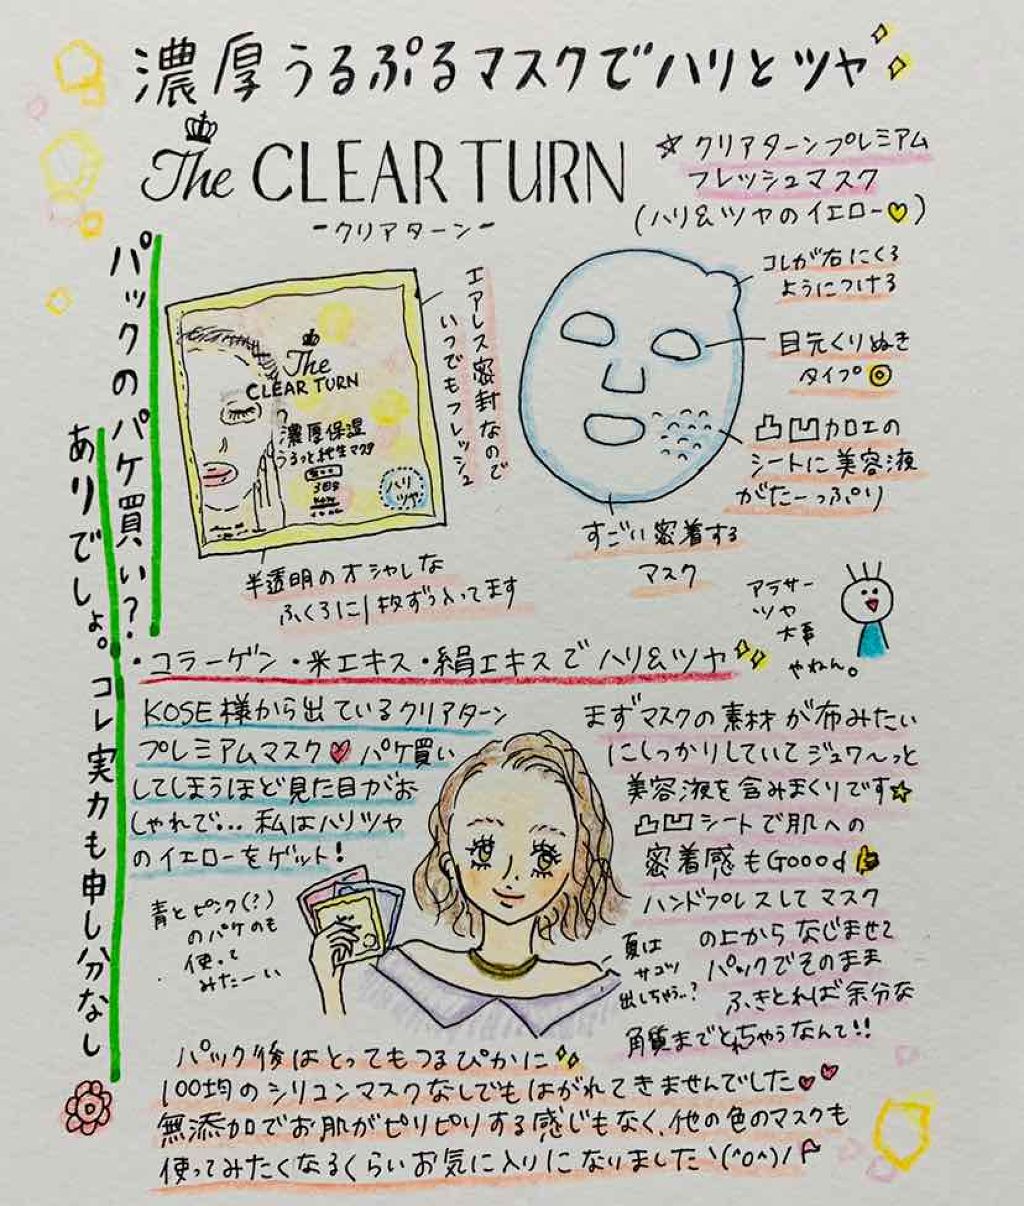 濃厚うるぷるマスクでハリとツヤ
The CLEAR TURN
-クリアターン-
☆クリアターンプレミアム
フレッシュマスク
(ハリ&ツヤのイエロー♡)
パックのパケ買い?
ありでしょ。コレ実力も申し分なし
The
CLEAR TURN
濃厚保湿
うるっと純生マスク
ハリ
ツヤ
エアレス密封なので
いつでもフレッシュ
半透明のオシャレな
ふくろに1枚ずつ入ってます
コレが右にくる
ようにつける
目元くりぬき
タイプ◎
凸凹加工の
シートに美容液
がたーっぷり
すごい密着する
マスク
アラサー
ツヤ
大事
やねん。
・コラーゲン・米エキス・絹エキスでハリ&ツヤ
KOSE様から出ているクリアターン
プレミアムマスク♡パケ買い
してしまうほど見た目がお
しゃれで...私はハリツヤ
のイエローをゲット!
青とピンク(?)
のパケのも
使って
みたーい
まずマスクの素材が布みたい
にしっかりしていてジュワ〜っと
美容液を含みまくりです☆
凸凹シートで肌への
密着感もGoood
ハンドプレスしてマスク
の上からなじませて
パックでそのまま
ふきとれば余分な
角質までとれちゃうなんて!!
夏は
サコツ
出しちゃう..?
パック後はとってもつるぴかに
100均のシリコンマスクなしでもはがれてきませんでした♡♡
無添加でお肌がピリピリする感じもなく、他の色のマスクも
使ってみたくなるくらいお気に入りになりましたヽ(^o^)/